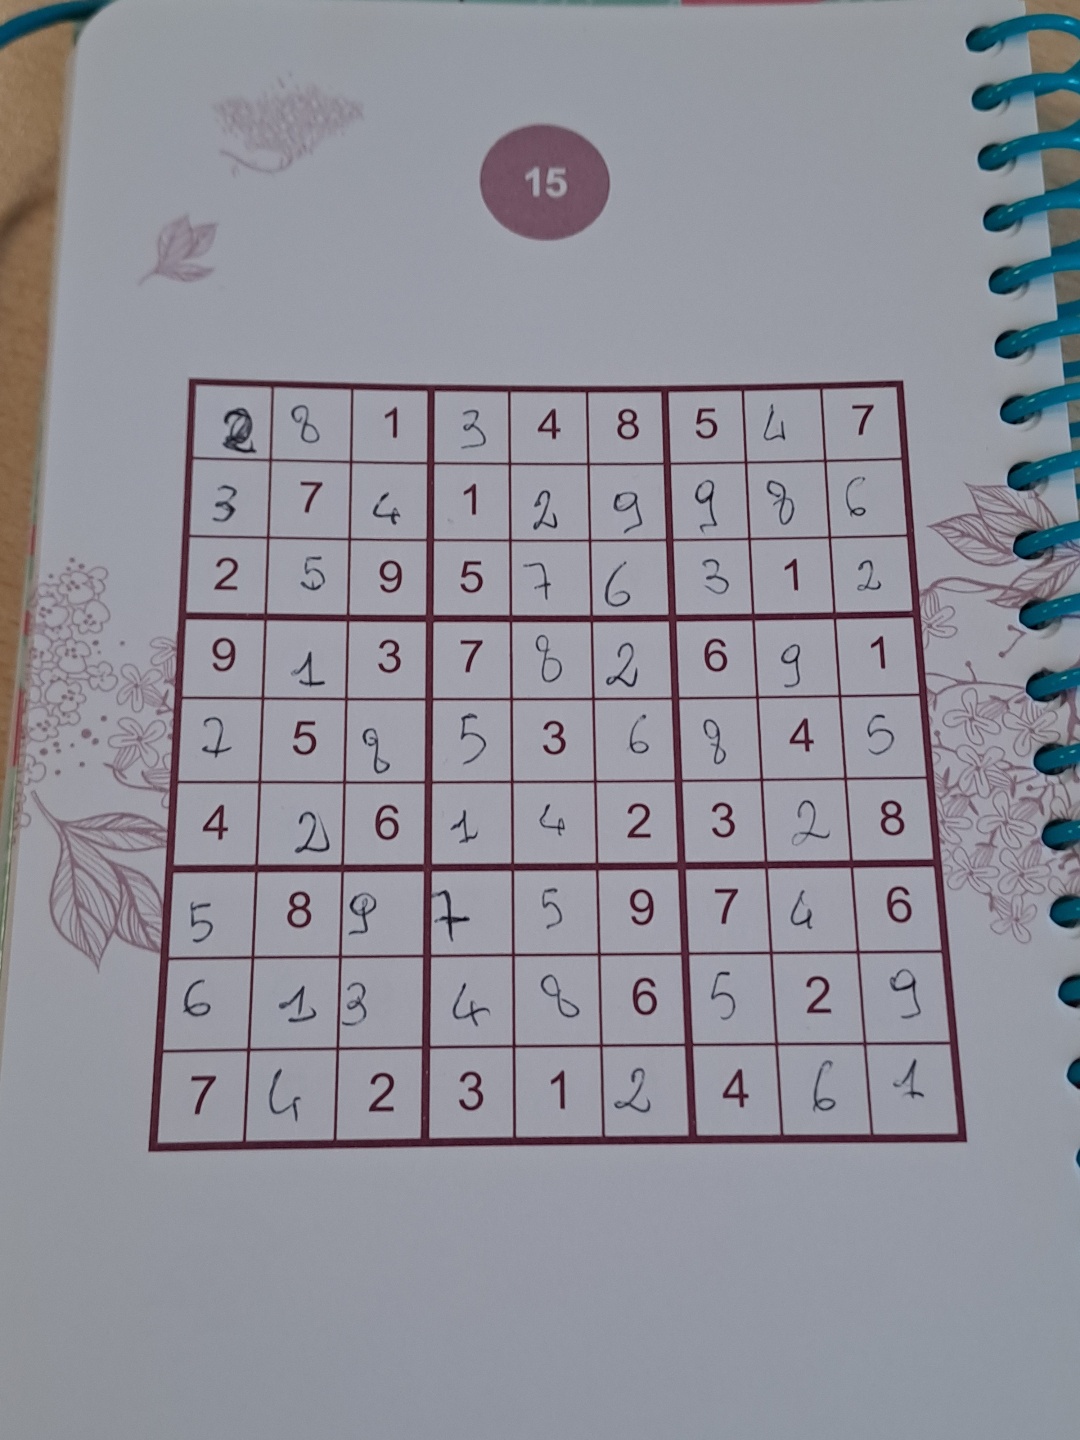 15
2 8 1 3 4 8 5 4 7
3 7 4 1 2 9 9 8 6
2 5 9 5 7 6 3 1 2
9 1 3 7 8 2 6 9 1
7 5 8 5 3 6 8 4 5
4 2 6 1 4 2 3 2 8
5 8 9 7 5 9 7 4 6
6 1 3 4 8 6 5 2 9
7 4 2 3 1 2 4 6 1